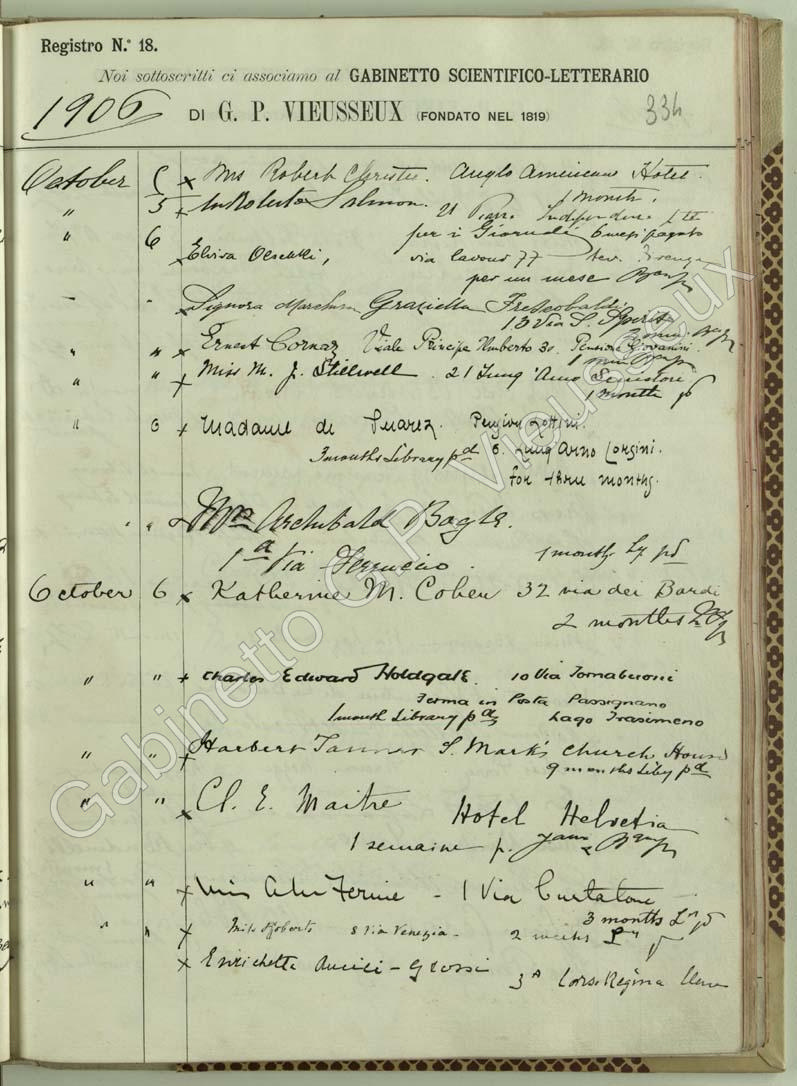 Registro N.° 18.
Noi sottoscritti ci associamo al GABINETTO SCIENTIFICO-LETTERARIO
1906 DI G. P. VIEUSSEUX (FONDATO NEL 1819) 334
October x Mrs Robert Christie. Anglo American Hotel.
" 5 x Salmon. 1 month.
21 Piazza Indipendenza
" 6 per i Giornali 6 mesi pagato
Elvisa via Cavour 77
per un mese
" " x Signora Marchesa Graziella Frescobaldi
13 Via S. Spirito
" " x Ernest Cornaz Viale Principe Umberto 30. Pensione Giovannini.
" x Miss M. J. Stillwell. 21 Lung'Arno
1 month pd
" 6 x Madame de Suarez. Lottini.
3 months Library pd 6. Lung Arno Corsini.
for three months.
" " x Mrs Archibald Bogle.
1a Via Ferruccio. 1 month Ly pd
October 6 x Katherine M. Cohen 32 via dei Bardi
2 months
" " x Charles Edward Holdgate. 10 Via Tornabuoni
Ferma in Posta Passignano
1 month Library pd Lago Trasimeno
" " x Herbert Tanner S. Mark's Church House
9 months Liby pd
" " x Cl. E. Maitre Hotel Helvetia
1 semaine p.
" " x Miss - 1 Via Curtatone
3 months Ly pd
" " x Miss Roberts 8 Via Venezia - 2 weeks
x Enrichetta - Grossi
3A Corso Regina
Gabinetto G.P. Vieusseux